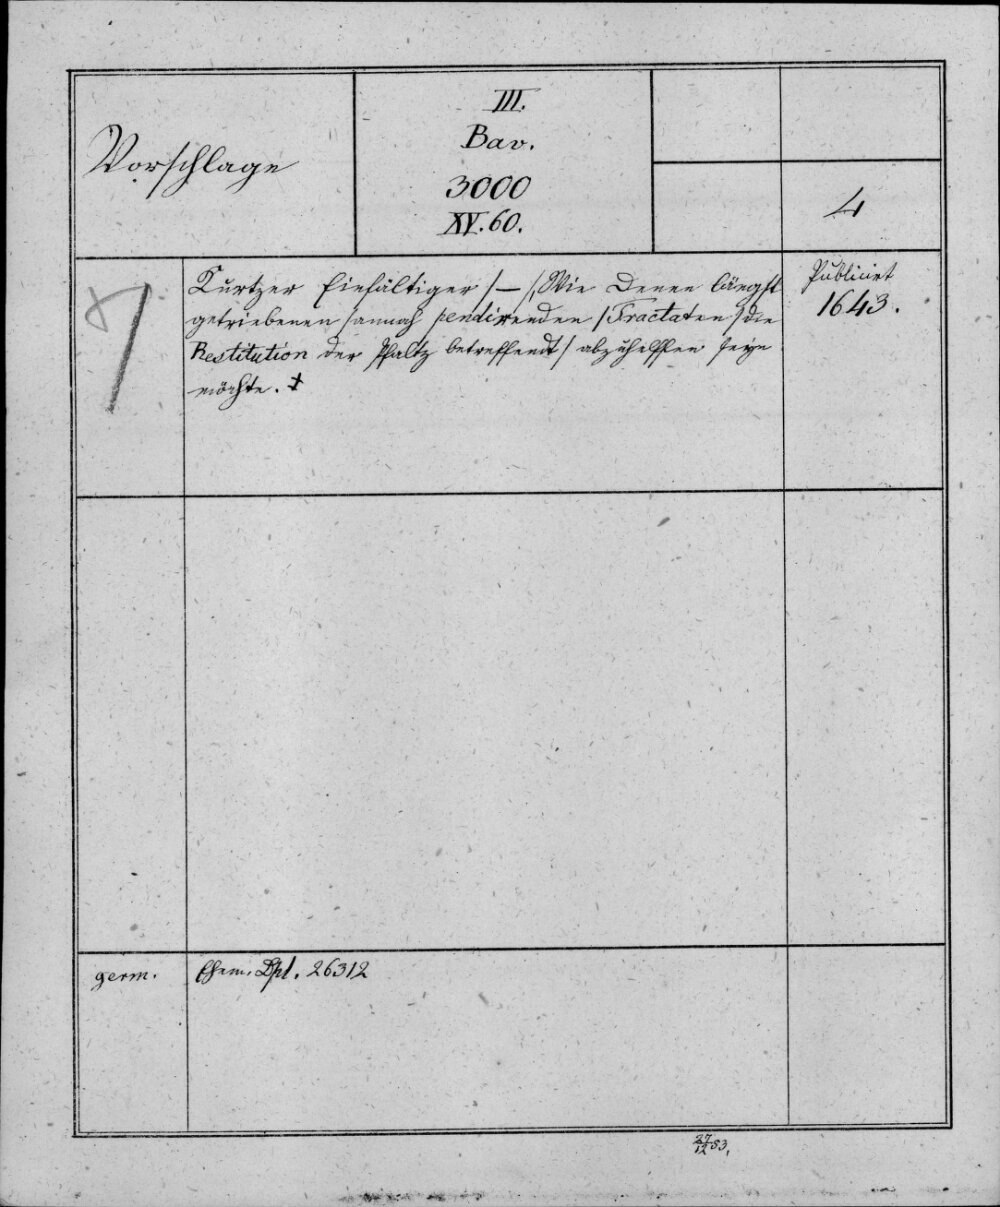 Vorschlage
III.
Bav.
3000
XV. 60.
4
Kurtzer Einfältiger /—/, Wie Denen längst
getriebenen /annoch pendirenden / Tractaten / die
Restitution der Pfaltz betreffendt / abzuhelffen seyn
möchte. +
Publicirt
1643.
germ.
Ehem. Dpl. 26312
27/12 83.